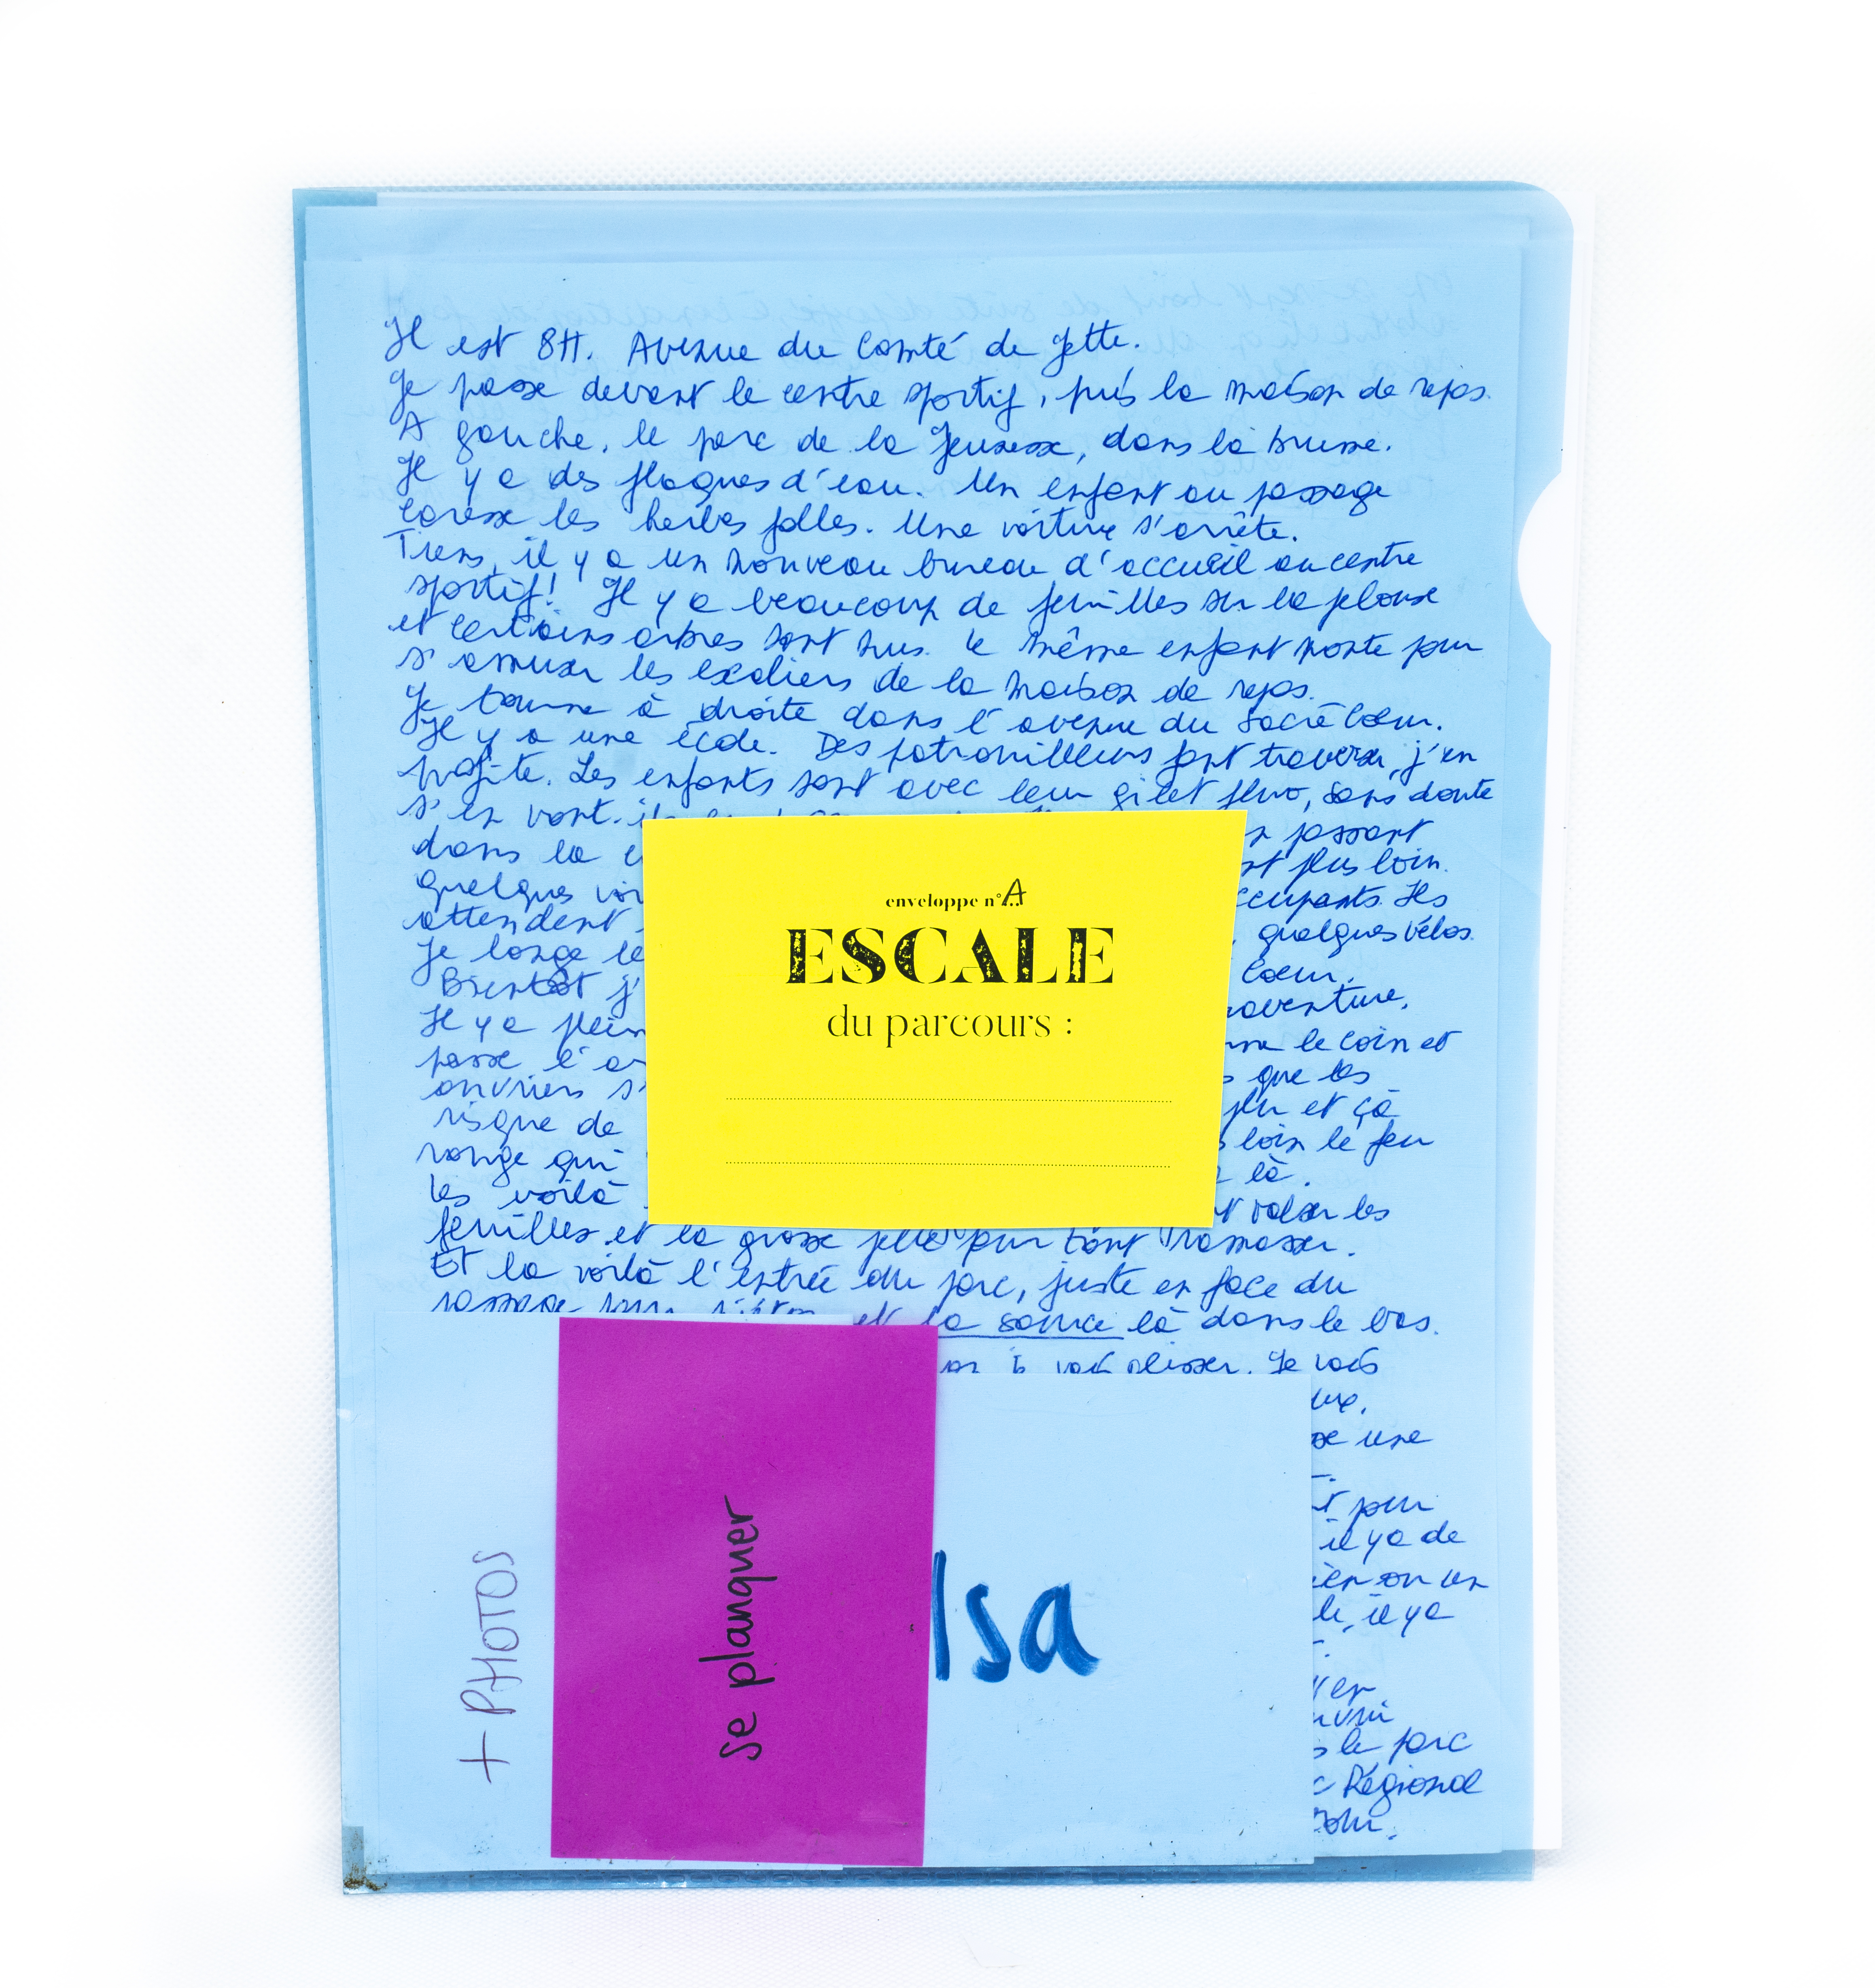 Il est 8H. Avenue du Comté de Jette.
Je passe devant le centre sportif, puis la maison de repos.
A gauche, le parc de la Jeunesse, dans la brume.
Il y a des flaques d'eau. Un enfant au passage
caresse les herbes folles. Une voiture s'arrête.
Tiens, il y a un nouveau bureau d'accueil au centre
sportif! Il y a beaucoup de feuilles sur la pelouse
et certains arbres sont nus. Le même enfant monte pour
s'amuser les escaliers de la maison de repos.
Je tourne à droite dans l'avenue du Sacré Coeur.
Il y a une école. Des patrouilleurs font traverser, j'en
profite. Les enfants sont avec leur gilet fluo, sans doute
s'en vont
passant
dans la
plus loin.
quelques
occupants. Ils
attendent
quelques vélos.
Je longe le
Coeur.
Bientôt j'
Il y a plein
le coin et
passe l'
que les
ouvriers s'
et çà
risque de
loin le feu
rouge qui
là.
les voilà
valser les
feuilles et la grosse pelle pour tout ramasser.
Et la voilà l'entrée du parc, juste en face du
et la source là dans le bas.
glisser. Je vois
une
pour
il y a de
on un
il y a
le parc
Régional
enveloppe n° A
ESCALE
du parcours :
+ PHOTOS
Se planquer
Isa